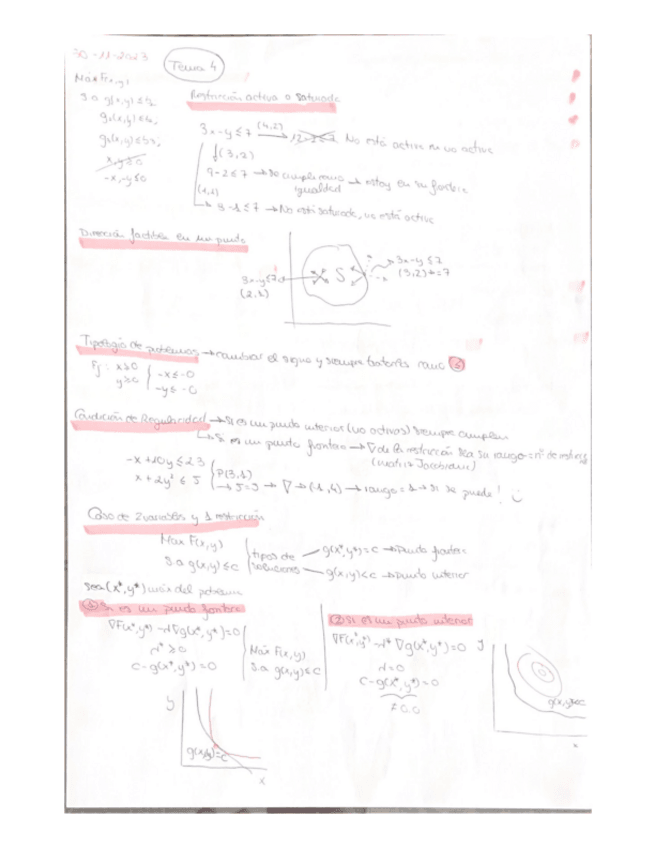 30-11-2023
Tema 4
Máx F(x,y)
s.a g(x,y) ≤ b
Restricción activa o saturada
3x-y ≤ 7 (4,2) → 12-2 ≤ 7 No está activa
x,y ≥ 0
-x,-y ≤ 0
f(3,2)
9-2 ≤ 7 → se cumple como igualdad → estoy en su frontera
(1,1)
3-1 ≤ 7 → No está saturada, no está activa
Dirección factible en un punto
S
3x-y ≤ 7
(2,1)
3x-y ≤ 7
(3,2) = 7
Tipología de problemas → cambiar el signo y siempre tratarlas como ≤
Ej: x ≥ 0
y ≥ 0
-x ≤ -0
-y ≤ -0
Condición de Regularidad → Si es un punto interior (no activas) siempre cumplen
→ Si es un punto frontera → ∇ de la restricción sea su rango = nº de
(matriz Jacobiana)
-x + 20y ≤ 23
x + 2y² ≤ 5
P(3,1)
→ 5=5 → ∇ → (1,4) → rango = 1 → Si se puede!
Caso de 2 variables y 1 restricción
Max F(x,y)
s.a g(x,y) ≤ c
tipos de soluciones
g(x*,y*) = c → Punto frontera
g(x,y) < c → Punto interior
Sea (x*,y*) máx del problema
① Si es un punto frontera
∇F(x*,y*) - λ∇g(x*,y*) = 0
λ* ≥ 0
c - g(x*,y*) = 0
Máx F(x,y)
s.a g(x,y) ≤ c
② Si es un punto interior
∇F(x*,y*) - λ* ∇g(x*,y*) = 0
λ = 0
c - g(x*,y*) = 0
y
g(x,y) = c
x
g(x,y) ≤ c
x